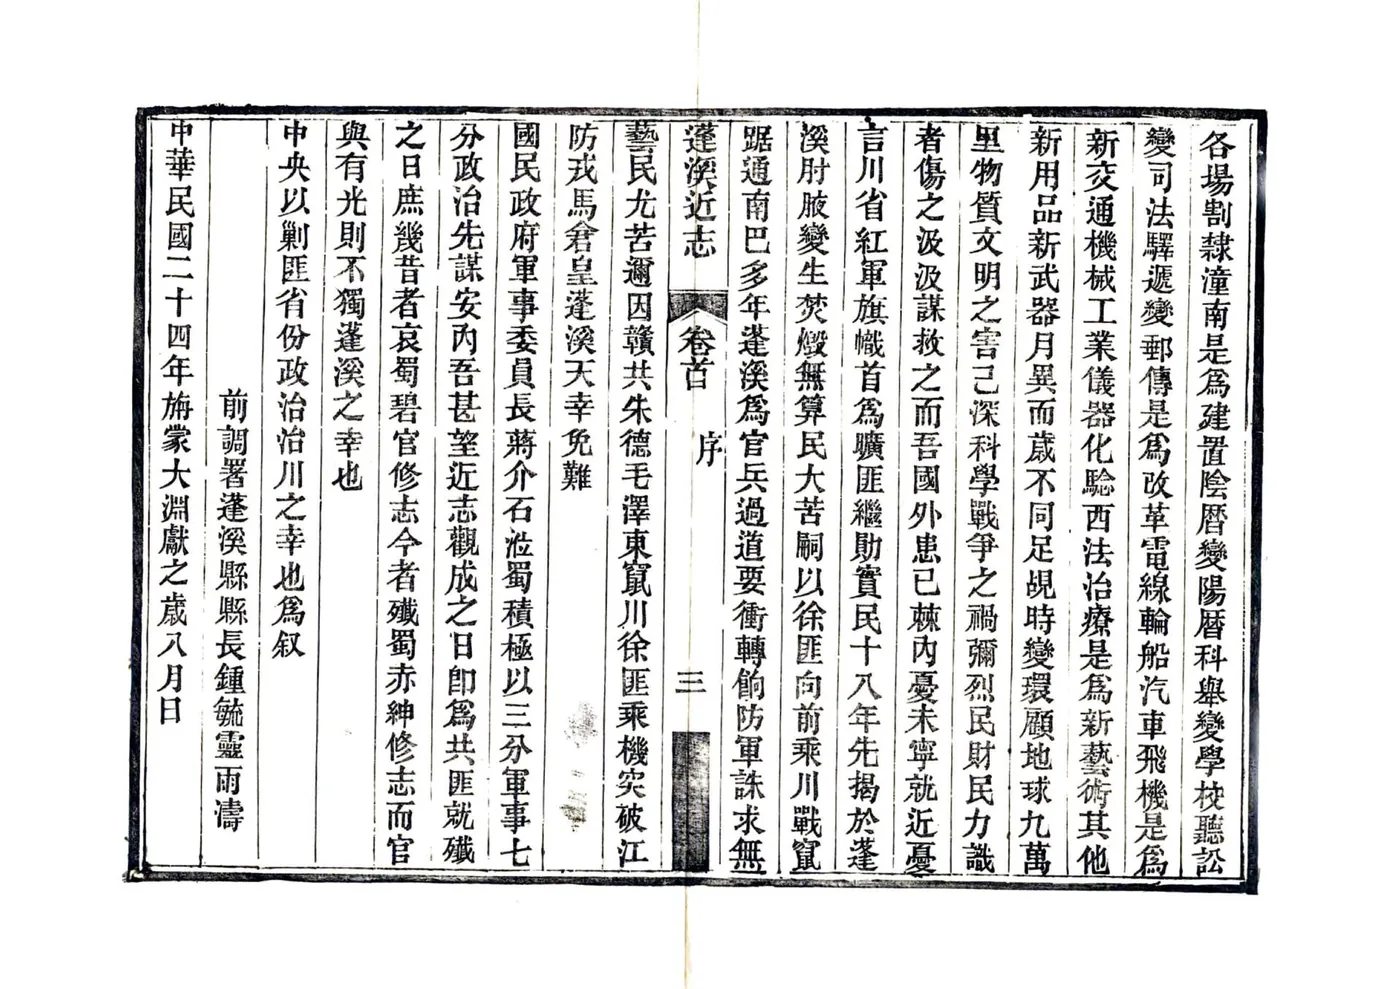 各場割隸潼南是爲建置陰曆變陽曆科舉變學校聽訟
變司法驛遞變郵傳是爲改革電線輪船汽車飛機是爲
新交通機械工業儀器化驗西法治療是爲新藝術其他
新用品新武器月異而歲不同足覘時變環顧地球九萬
里物質文明之害己深科學戰爭之禍彌烈民財民力識
者傷之汲汲謀救之而吾國外患已棘內憂未寧就近憂
言川省紅軍旗幟首爲曠匪繼勛實民十八年先揭於蓬
溪肘腋變生焚燬無算民大苦嗣以徐匪向前乘川戰竄
踞通南巴多年蓬溪爲官兵過道要衝轉餉防軍誅求無
蓬溪近志 卷首 序 三
藝民尤苦邇因贛共朱德毛澤東竄川徐匪乘機突破江
防戎馬倉皇蓬溪天幸免難
國民政府軍事委員長蔣介石涖蜀積極以三分軍事七
分政治先謀安內吾甚望近志觀成之日卽爲共匪就殲
之日庶幾昔者哀蜀碧官修志今者殲蜀赤紳修志而官
與有光則不獨蓬溪之幸也
中央以剿匪省份政治治川之幸也爲叙
前調署蓬溪縣縣長鍾毓靈雨濤
中華民國二十四年旃蒙大淵獻之歲八月日